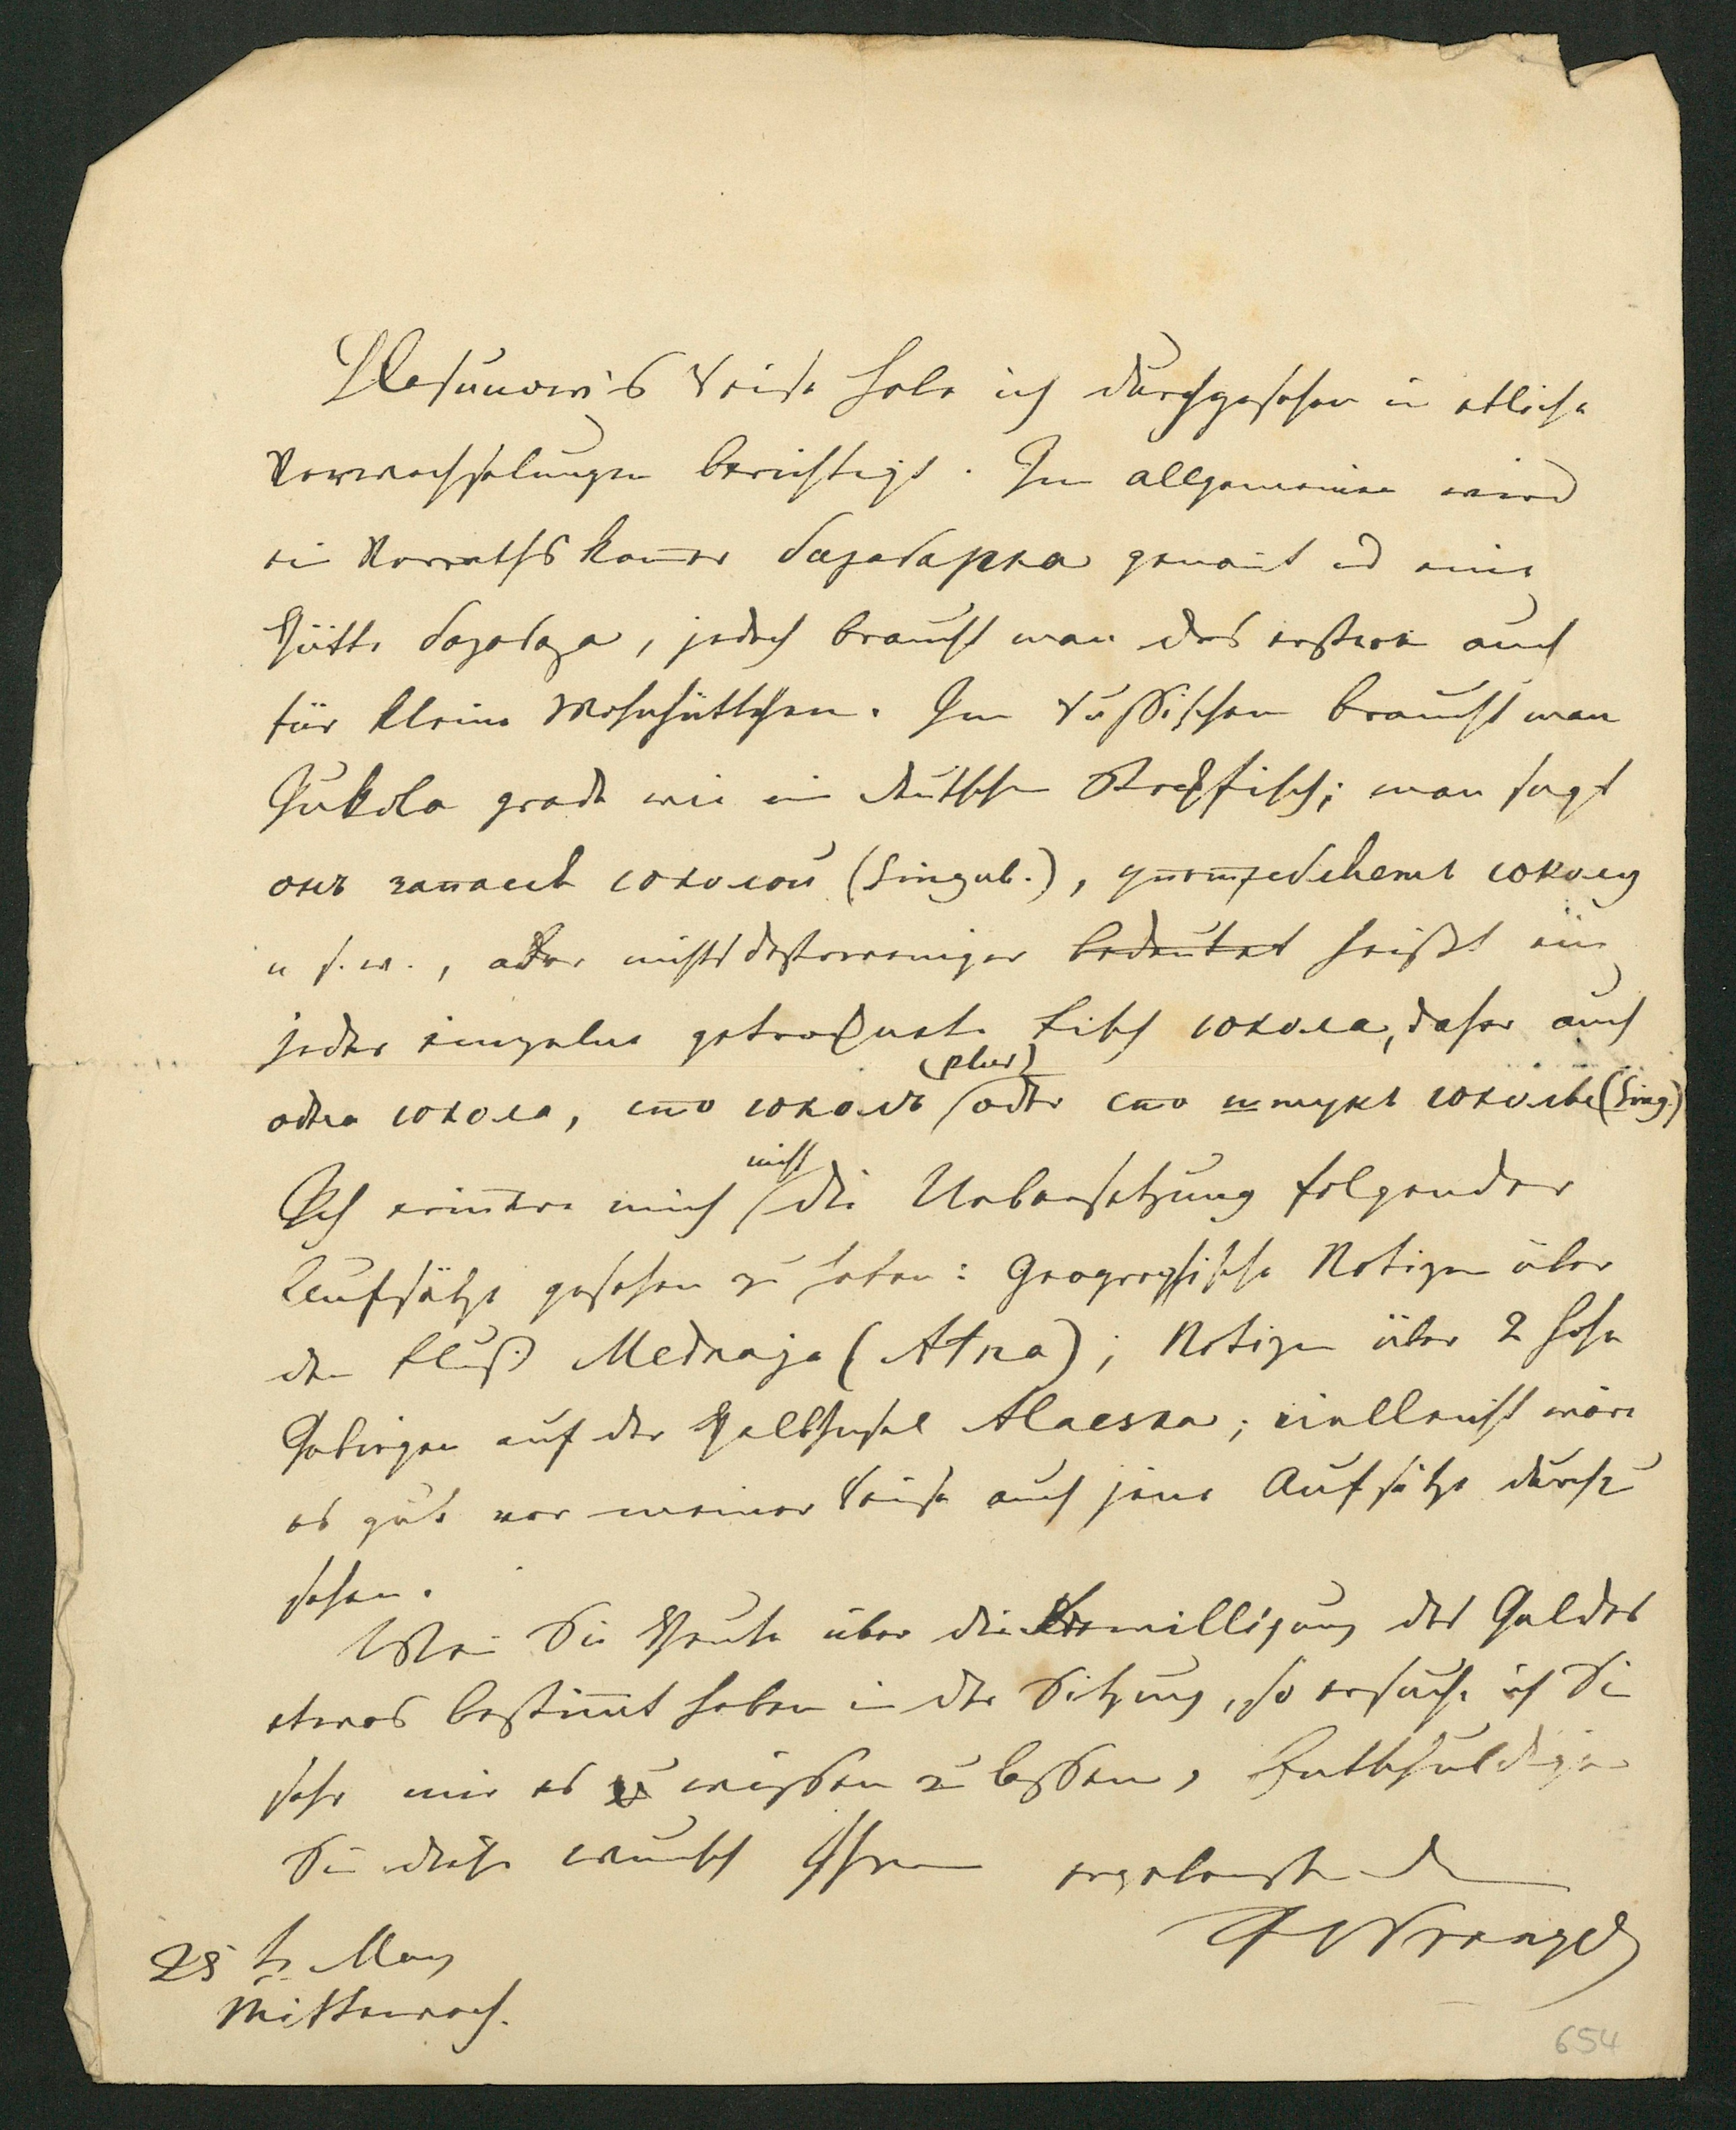 Glasunow's Reise habe ich durchgesehen u etliche
Verwechselungen berichtigt. Im allgemeinen wird
ein Vorrathskam̅er барабарка genan̅t u̅d eine
Hütte барабара, jedoch braucht man das erstere auch
für kleine Wohnhüttchen. Im Russischen braucht man
Jukola grade wie im deutschen Stockfisch; man sagt
онъ запасся юколой (Singul.), употребляетъ юколу
u s. w., aber nichtsdestoweniger bedeutet heißt ein
jeder einzelne getrocknete Fisch юкола, daher auch
одна юкола, сто юколъ (plur) oder сто штукъ юколы (Sing.)
Ich erin̅ere mich nicht die Uebersetzung folgender
Aufsätze gesehen zu haben: Geographische Notizen über
den Fluß Mednaja (Atna); Notizen über 2 hohe
Gebirgen auf der Halbinsel Alaeska; vielleicht wäre
es gut vor meiner Reise auch jene Aufsätze durchzu
sehen.
Wen̅ Sie Heute über die Bewilligung des Geldes
etwas bestim̅t haben in der Sitzung, so ersuche ich Sie
sehr mir es wissen zu lassen, Entschuldigen
Sie diesen Wunsch Ihrem ergebensten
F Wrangell
25 May
Mittewoch.
654